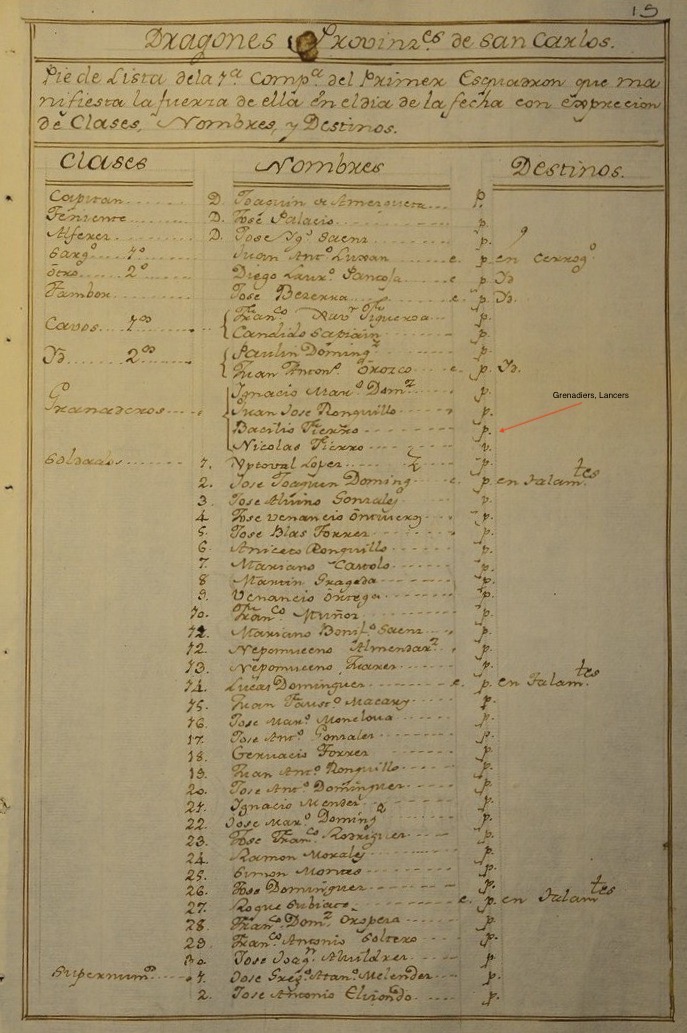 15
Dragones Provinz.es de San Carlos.
Pie de Lista dela 1ª Compª del Primer Esquadron que ma
nifiesta la fuerza de ella en el dia de la fecha con exprecion
de Clases, Nombres, y Destinos.
Clases Nombres Destinos.
Capitan D. Joaquin de Amezqueta p.
Teniente D. José Palacio p.
Alferez D. Jose Ygº Saenz p.
Sargº 1º Juan Antº Luxan e. p. en Cerrogº
Otro 2º Diego Laurº Pancoja e p. Yd
Tambor Jose Bezerra e. p. Yd.
Cavos 1os Franco Xavr Figueroa p.
Candido Sapiain p.
Yd 2os Paulin Doming.z p.
Juan Antonº Orozco e. p. Yd.
Ignacio Marº Dom.z p.
Granaderos Juan Jose Ronquillo p.
Grenadiers, Lancers
Basilio Fierro p.
Nicolas Fierro v.
Soldados 1. Lopez p.
2. Jose Joaquin Doming.z e. p. en Jalam.tes
3. Jose Alvino Gonzales v.
4. Jose Venancio p.
5. Jose Blas Forrez p.
6. Aniceto Ronquillo p.
7. Mariano Castolo p.
8 Martin Grageda p.
9. Venancio Ortega p.
10. Fran.co Muñoz p.
12. Mariano Bonif.º Saenz p.
12. Nepomuceno Almenzar.z p.
13. Nepomuceno p.
14. Lucas Dominguez e. p. en Jalam.tes
15. Juan Faustº Macary p.
16. Jose Marº Monclova p.
17. Jose Antº Gonzales p.
18. Gervacio Forrez p.
19. Juan Antº Ronquillo p.
20. Jose Antº Dominguez p.
21. Ignacio Mendez p.
22. Jose Marº Doming.z p.
23. Jose Fran.co Rodriguez p.
24. Ramon Morales p.
25. Simon Montes p.
26. Jose Dominguez p.
27. Roque Subiate e. p. en Jalam.tes
28. Fran.co Dom.z Oropeza p.
29. Fran.co Antonio Soltero p.
30. Jose Joaq.n Alvildrez p.
Supernum.os 1. Jose Gregº Atanº Melendez p.
2. Jose Antonio Elviondo p.